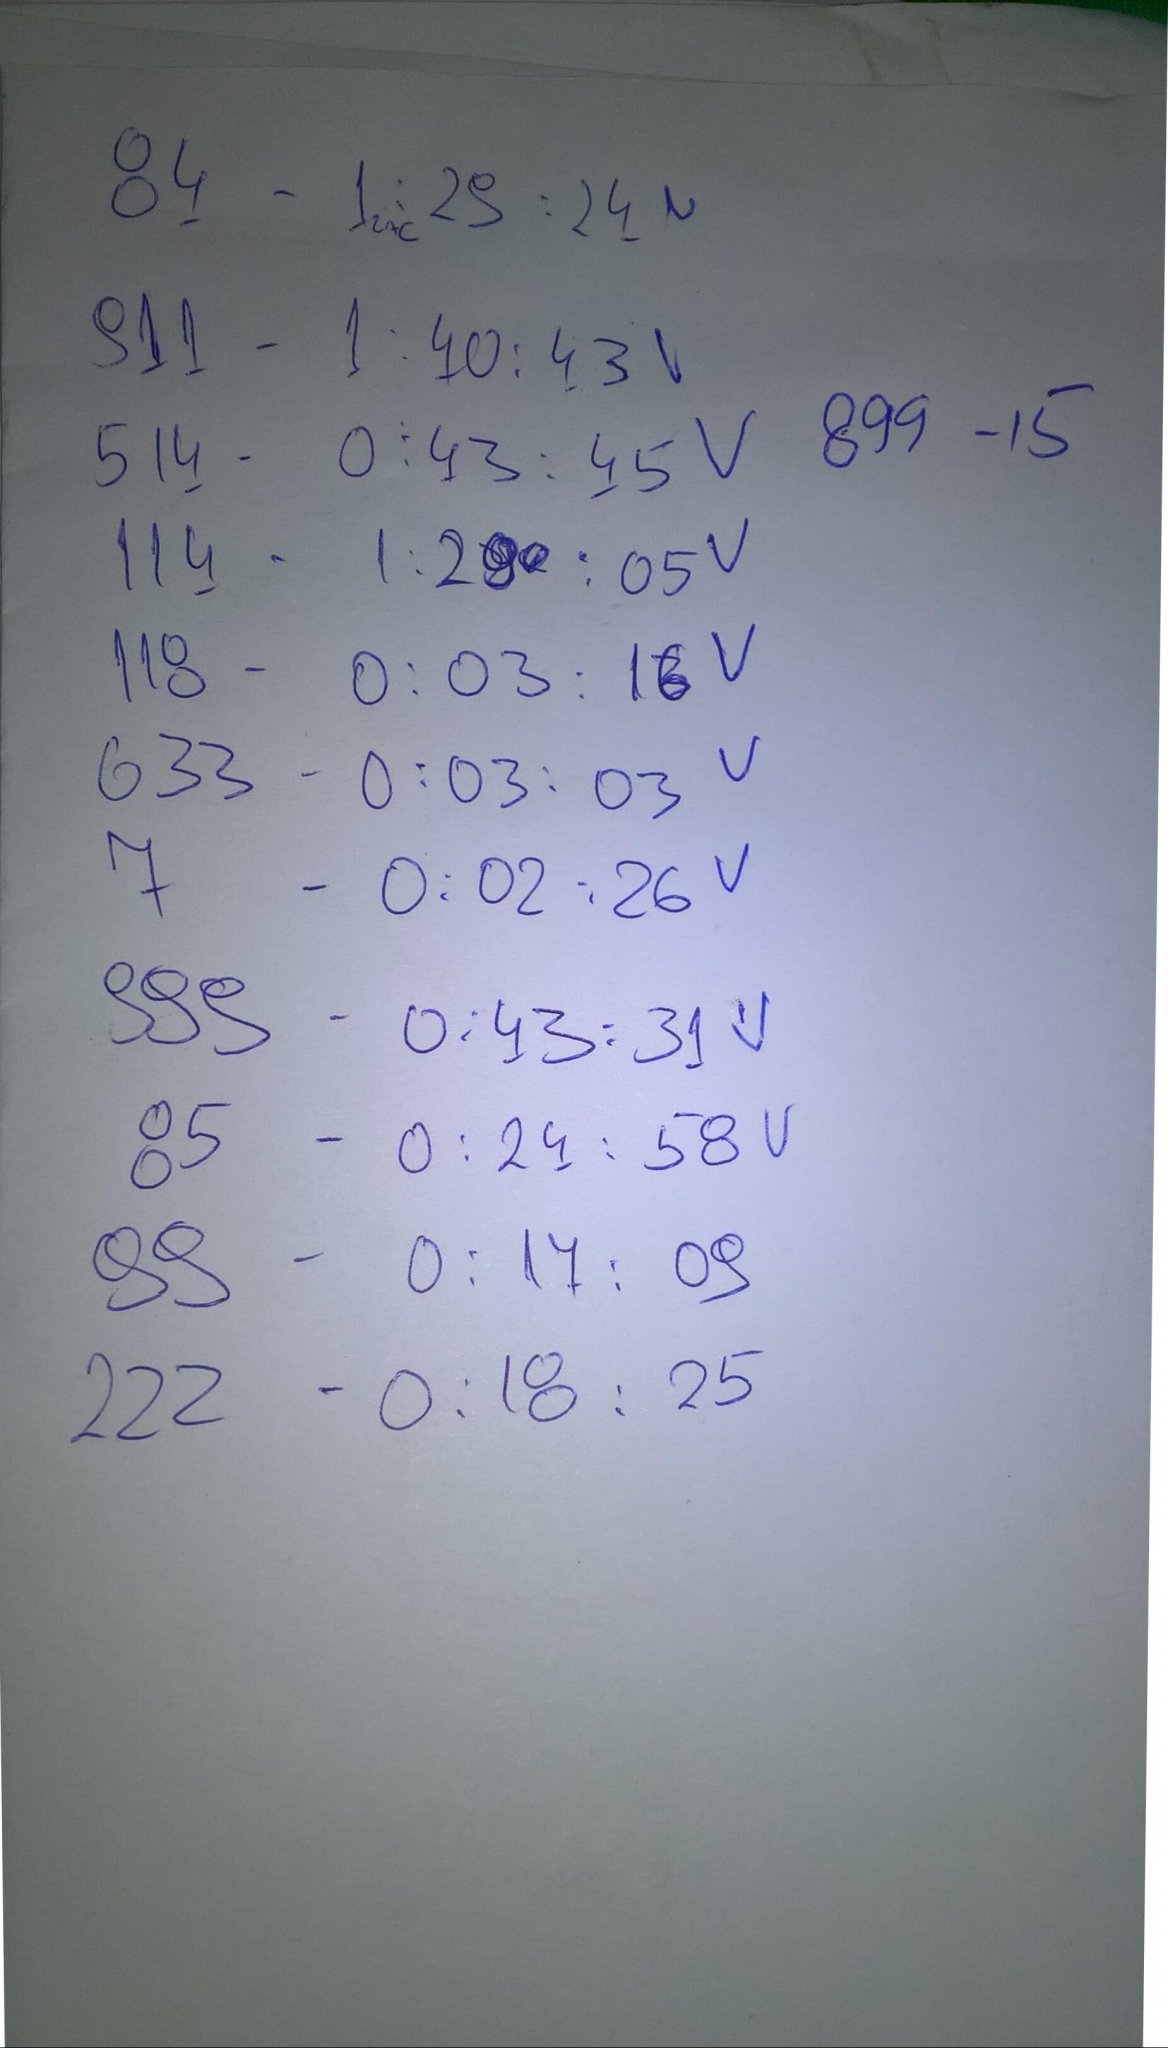 84 - 1час:29:24 V
911 - 1:40:43 V
514 - 0:43:45 V 899 - 15
114 - 1:29:05 V
118 - 0:03:16 V
633 - 0:03:03 V
7 - 0:02:26 V
999 - 0:43:31 V
85 - 0:24:58 V
99 - 0:17:09
222 - 0:18:25